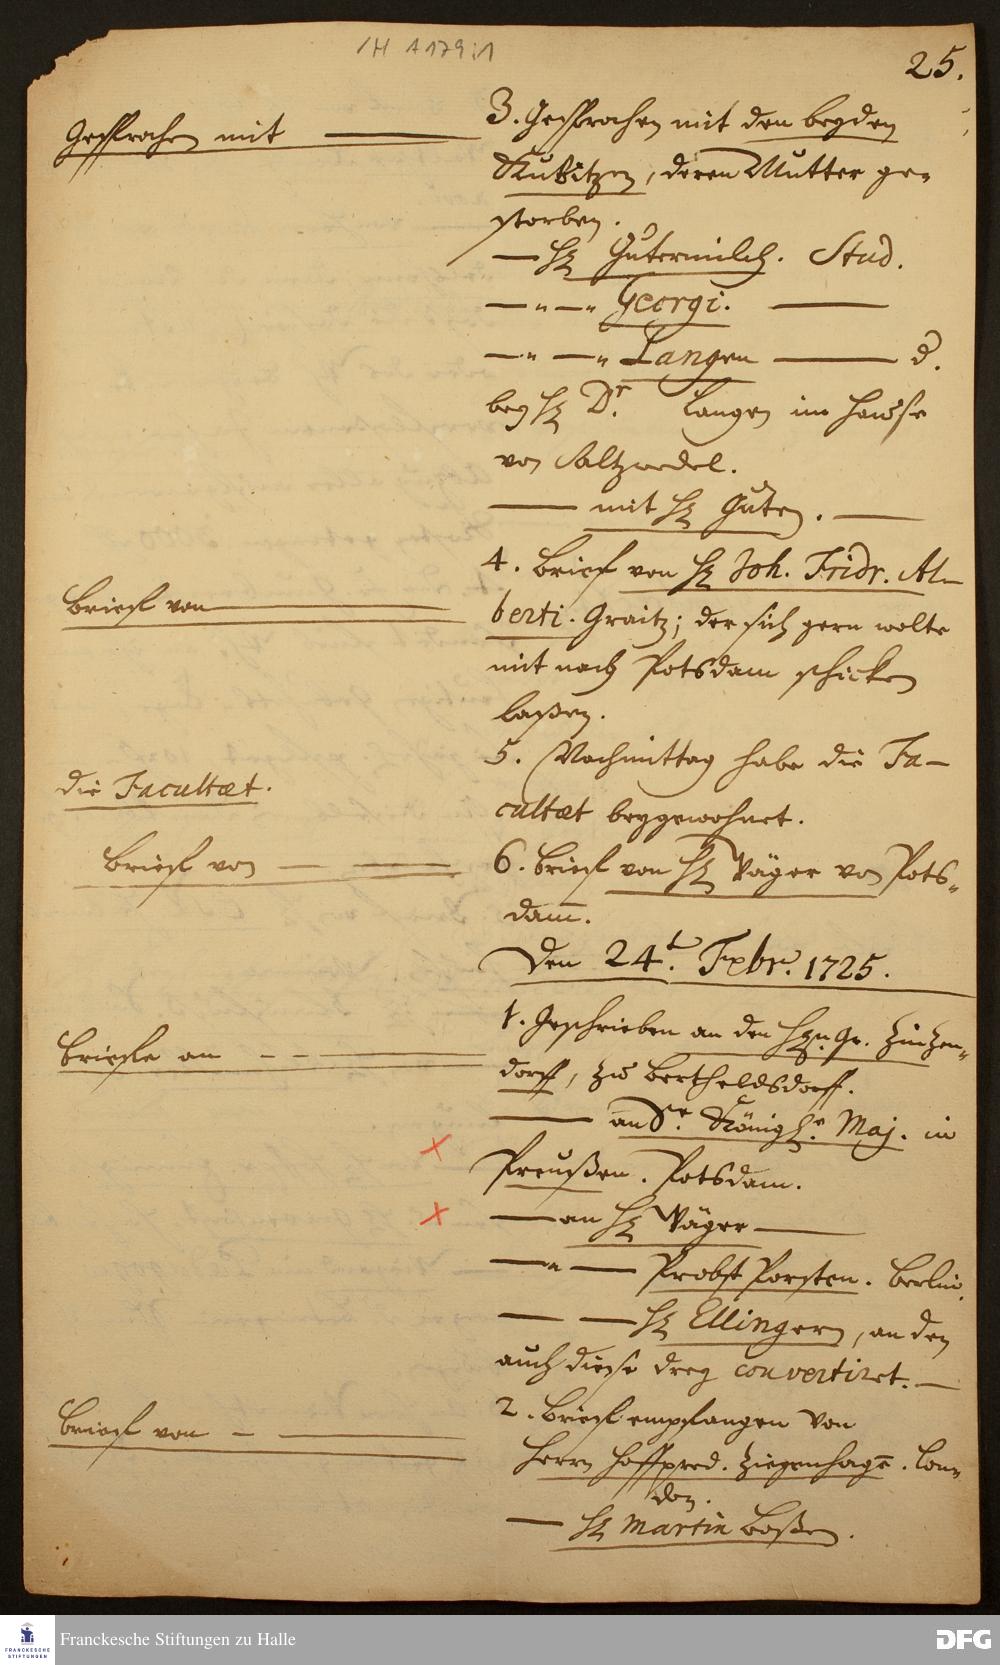 /H A 179:1
25.
Gesprochen mit
3. Gesprochen mit den beyden
Kubitzen, deren Mutter ge-
storben.
— H. Gutermilch. Stud.
— " — " Georgi. —
— " — " Langen — d.
bey H. Dr. Langen im Hause
von Saltzwedel.
— mit H. Guten. —
Brief von
4. Brief von H. Joh. Fridr. Al-
berti. Graitz; der sich gern wolte
mit nach Potsdam schicken
laßen.
die Facultæt.
5. Nachmittag habe die Fa-
cultæt beygewohnet.
Brief von — —
6. Brief von H. Jäger von Pots-
dam.
Den 24t. Febr. 1725.
Briefe an - - —
1. Geschrieben an den Hn. Gr. Zinzen-
dorff, zu Bertheldsdorff.
— an Sr. Königl. Maj. in
Preußen. Potsdam.
— an H. Jäger —
— " — Probst Porsten. Berlin.
— — H. Ellingern, an den
auch diese drey convertiret. —
Brief von - —
2. Brief empfangen von
Herrn Hoffpred. Ziegenhagē. Lon-
don.
— H. Martin Boßen.
Franckesche Stiftungen zu Halle
FRANCKESCHE
STIFTUNGEN
DFG